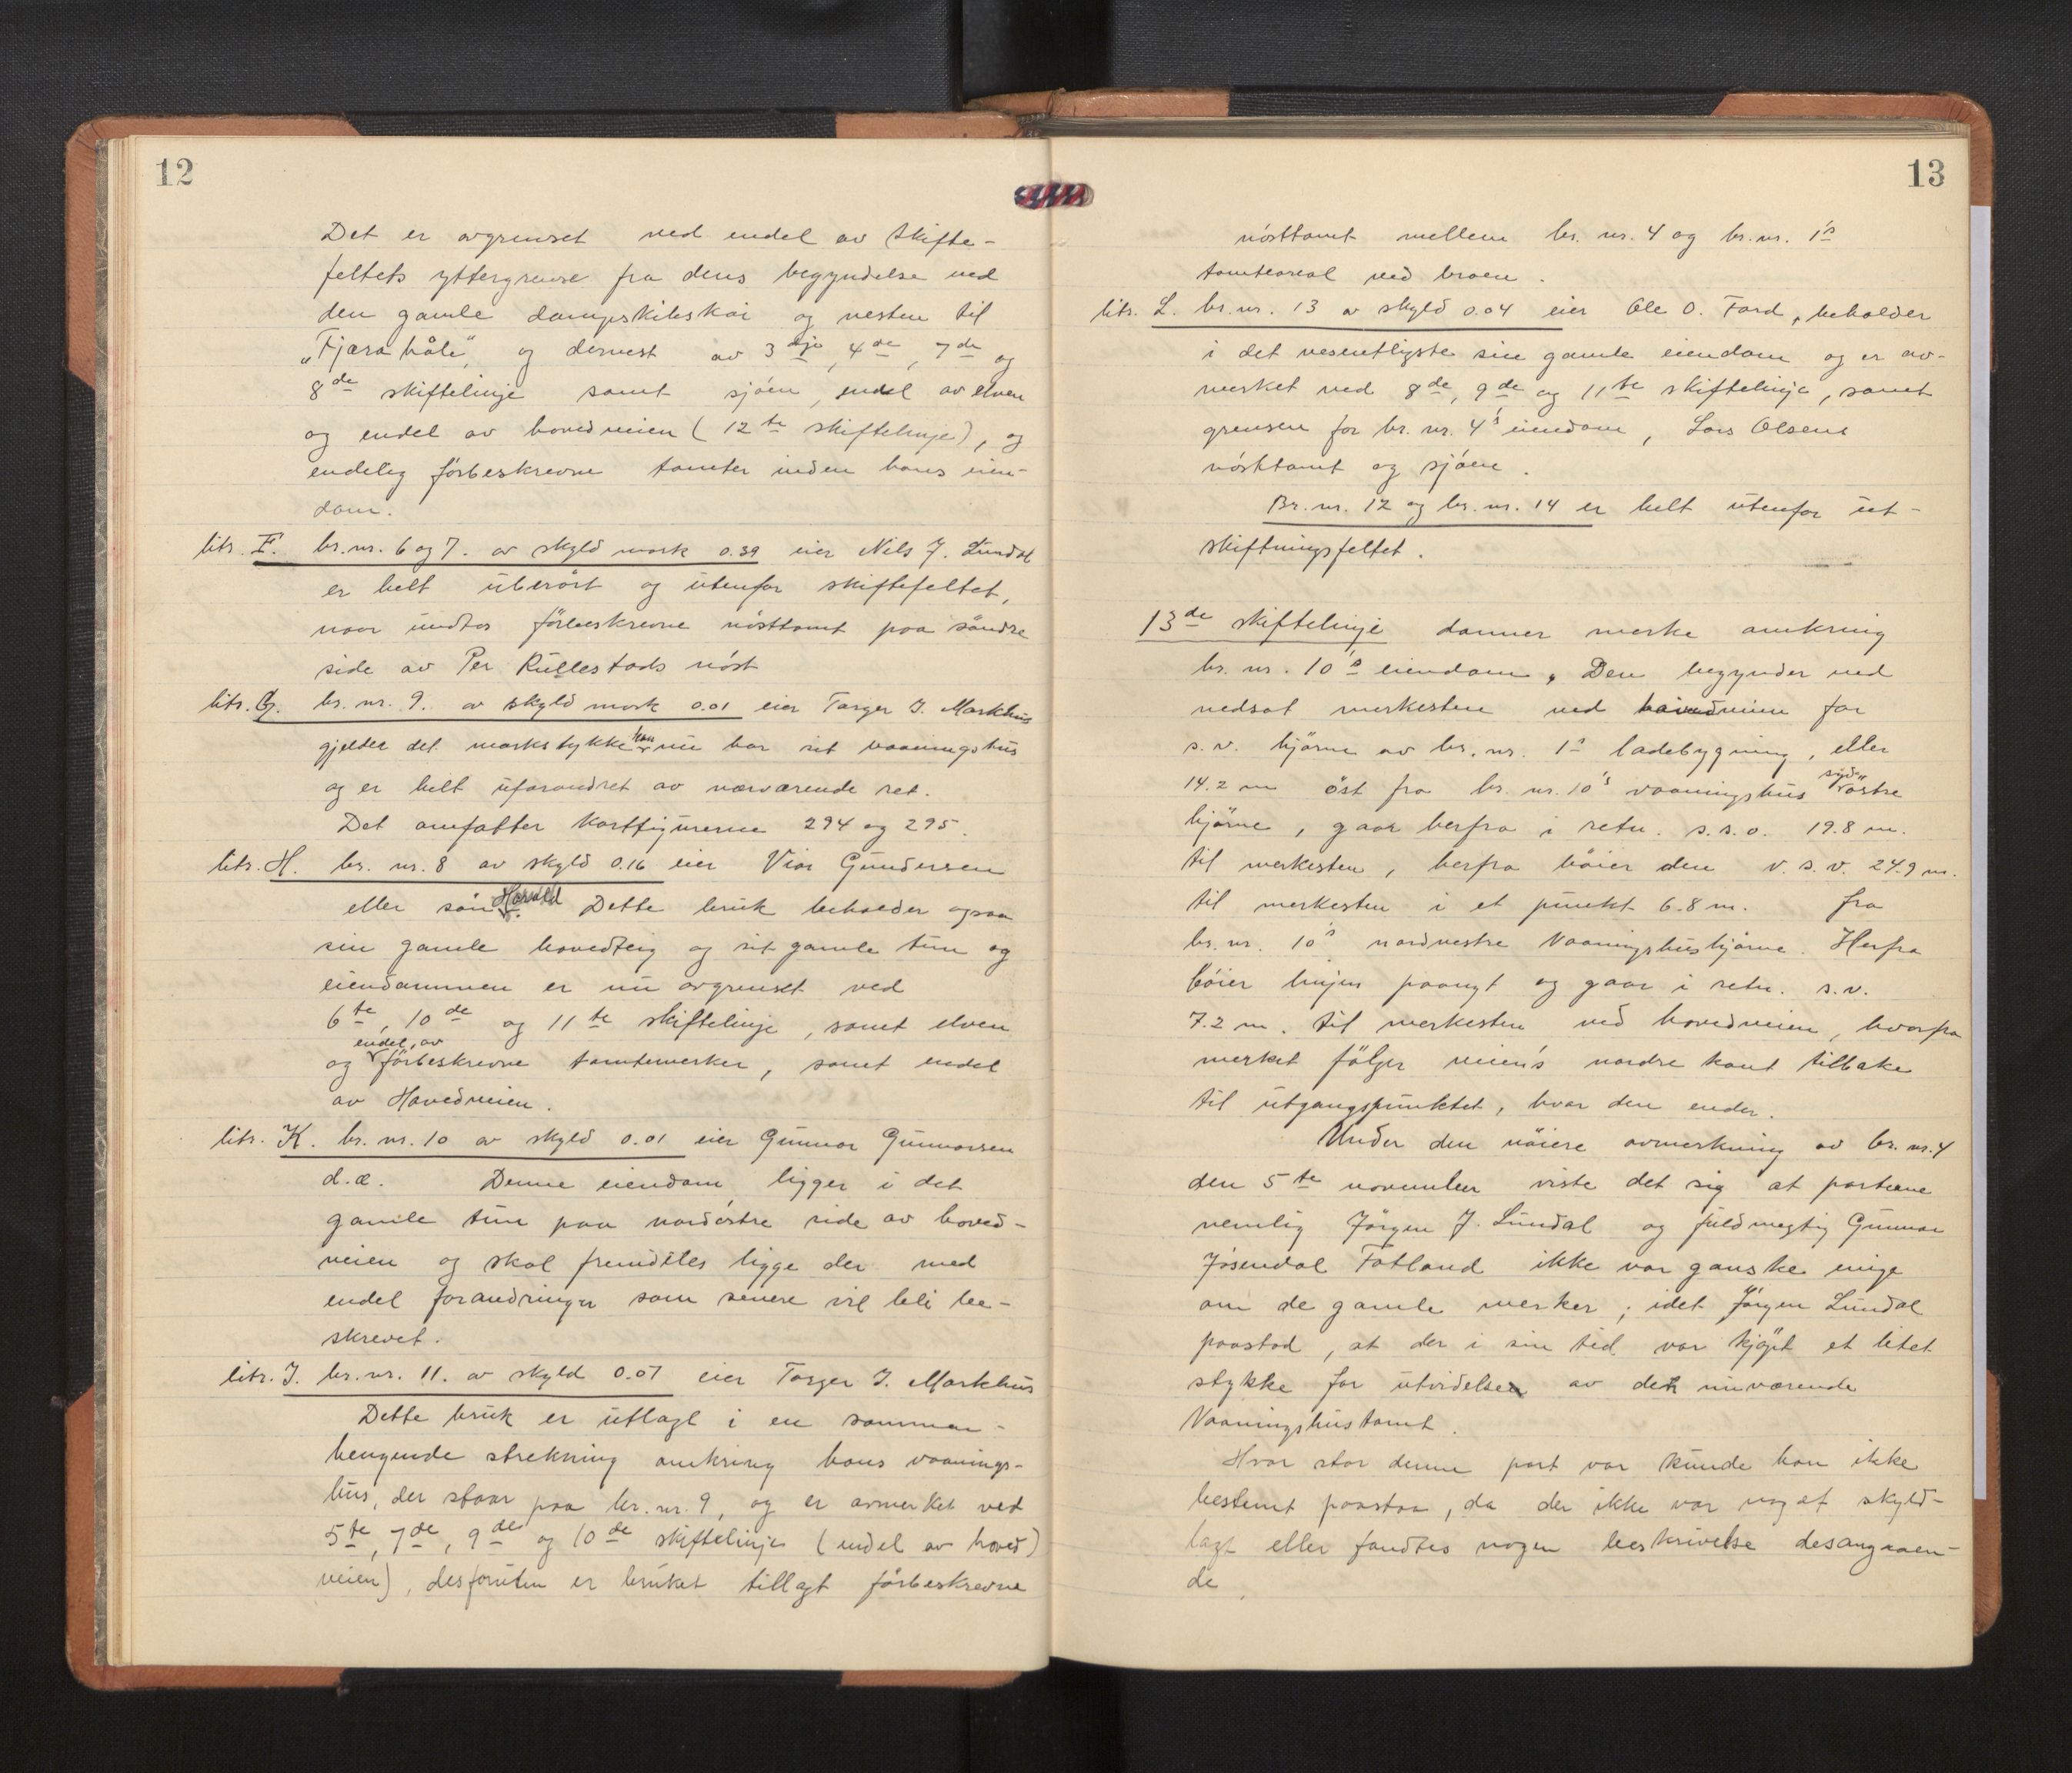 12
Det er avgrenset ved endel av skifte-
feltets yttergrense fra dens begyndelse ved
den gamle dampskibskai og nesten til
„Fjæra håle", og dernest av 3dje, 4de, 7de og
8de skiftelinje samt sjöen, endel av elven
og endel av hovedveien (12te skiftelinje), og
endelig förbeskrevne tomter inden hans eien-
dom.
litr. F. br. nr. 6 og 7. av skyld mark 0.39 eier Nils J. Lundal
er helt uberört og utenfor skiftefeltet,
naar undtas förbeskrevne nösttomt paa söndre
side av Per Rullestads nöst
litr. G. br. nr. 9. av skyld mark 0.01 eier Torger J. Markhus
gjelder det markstykke han nu har sit vaaningshus
og er helt uforandret av nærværende ret.
Det omfatter kartfigurerne 294 og 295.
litr. H. br. nr. 8 av skyld 0.16 eier Viar Gundersen
eller sön Harald. Dette bruk beholder ogsaa
sin gamle hovedteig og sit gamle tun og
eiendommen er nu avgrenset ved
6te, 10de og 11te skiftelinje, samt elven
og endel av förbeskrevne tomtemerker, samt endel
av Hovedveien.
litr. K. br. nr. 10 av skyld 0.01 eier Gunnar Gunnarsen
d.æ. Denne eiendom ligger i det
gamle tun paa nordöstre side av hoved-
veien og skal fremdeles ligge der med
endel forandringer som senere vil bli be-
skrevet.
litr. J. br. nr. 11. av skyld 0.07 eier Torger J. Markhus
Dette bruk er utlagt i en sammen-
hengende strekning omkring hans vaanings-
hus, der staar paa br. nr. 9, og er avmerket ved
5te, 7de, 9de og 10de skiftelinje (endel av hoved)
veien), desforuten er bruket tillagt förbeskrevne
13
nösttomt mellem br. nr. 4 og br. nr. 1's
tomteareal ved broen.
litr. L. br. nr. 13 av skyld 0.04 eier Ole O. Fard, beholder
i det vesentligste sin gamle eiendom og er av-
merket ved 8de, 9de og 11te skiftelinje, samt
grensen for br. nr. 4's eiendom, Lars Olsens
nösttomt og sjöen.
Br. nr. 12 og br. nr. 14 er helt utenfor ut-
skiftningsfeltet.
13de skiftelinje danner merke omkring
br. nr. 10's eiendom, Den begynder ved
nedsat merkesten ved hovedveien for
s.v. hjörne av br. nr. 1's ladebygning, eller
14.2 m öst fra br. nr. 10's vaaningshus syd östre
hjörne, gaar herfra i retn. s.s.o. 19.8 m.
til merkesten, herfra böier den v.s.v. 24.9 m.
til merkesten i et punkt 6.8 m. fra
br. nr. 10's nordvestre Vaaningshushjörne. Herfra
böier linjen paanyt og gaar i retn. s.v.
7.2 m. til merkesten ved hovedveien, hvorfra
merket fölger veien's nordre kant tilbake
til utgangspunktet, hvor den ender.
Under den nöiere avmerkning av br. nr. 4
den 5te november viste det sig at partene
nemlig Jörgen J. Lundal og fuldmegtig Gunnar
Jösendal Fatland ikke var ganske enige
om de gamle merker; idet Jörgen Lundal
paastod, at der i sin tid var kjöpt et litet
stykke for utvidelse av den nuværende
Vaaningshustomt.
Hvor stor denne part var kunde han ikke
bestemt paastaa, da der ikke var noget skyld-
lagt eller fandtes nogen beskrivelse desangaaen-
de.